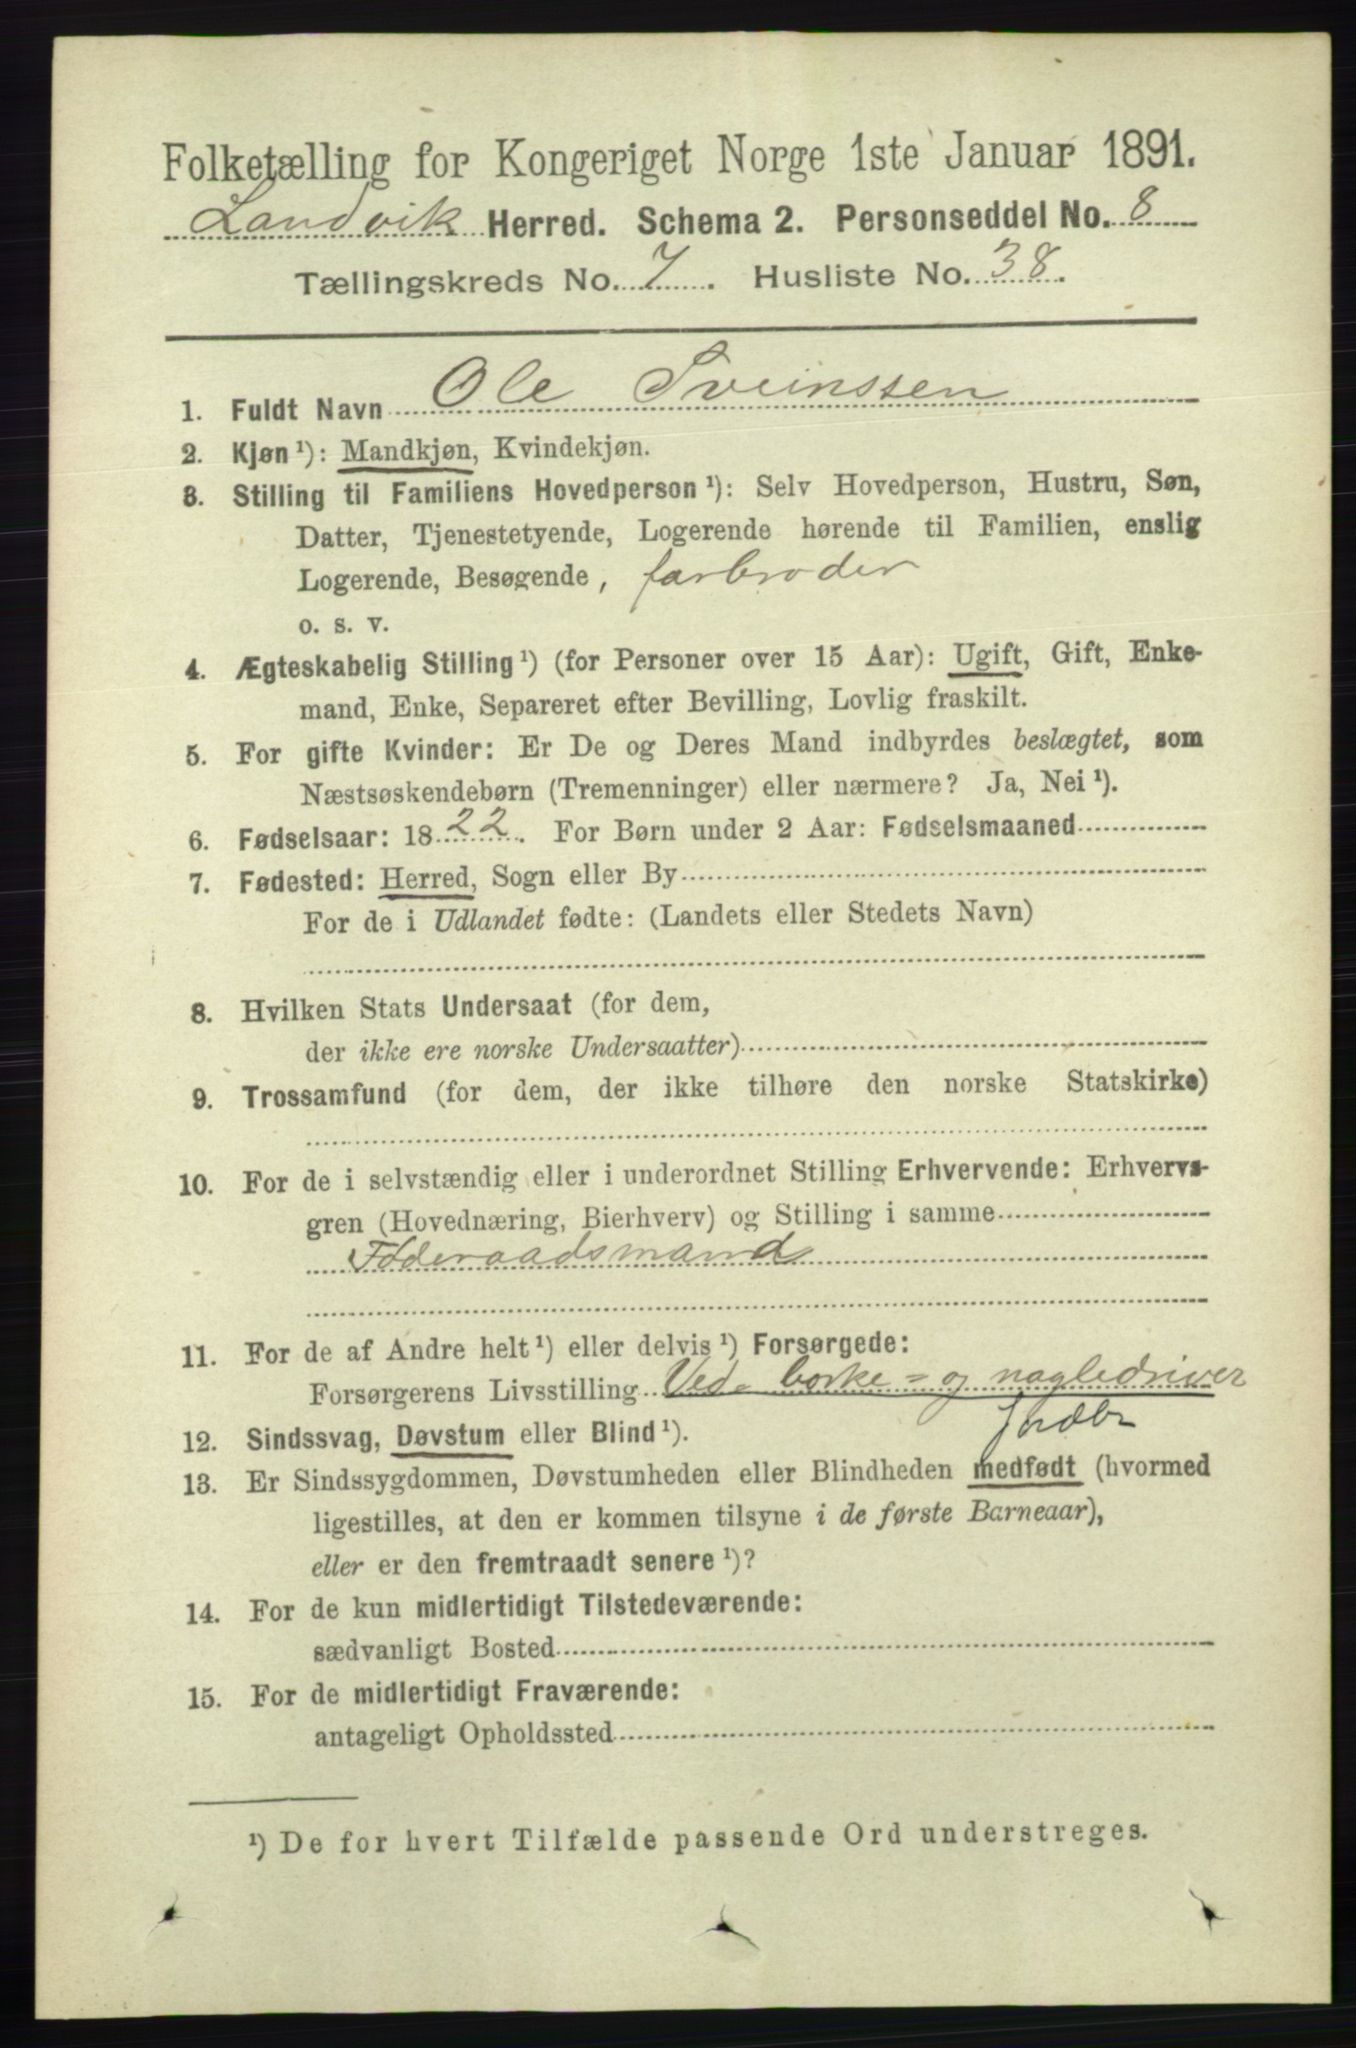 Folketælling for Kongeriget Norge 1ste Januar 1891.
Landvik Herred. Schema 2. Personseddel No. 8
Tællingskreds No. 7. Husliste No. 38.
1. Fuldt Navn Ole Sveinssen
2. Kjøn¹): Mandkjøn, Kvindekjøn.
3. Stilling til Familiens Hovedperson¹): Selv Hovedperson, Hustru, Søn,
Datter, Tjenestetyende, Logerende hørende til Familien, enslig
Logerende, Besøgende, farbroder
o. s. v.
4. Ægteskabelig Stilling¹) (for Personer over 15 Aar): Ugift, Gift, Enke-
mand, Enke, Separeret efter Bevilling, Lovlig fraskilt.
5. For gifte Kvinder: Er De og Deres Mand indbyrdes beslægtet, som
Næstsøskendebørn (Tremenninger) eller nærmere? Ja, Nei¹).
6. Fødselsaar: 1822. For Børn under 2 Aar: Fødselsmaaned
7. Fødested: Herred, Sogn eller By
For de i Udlandet fødte: (Landets eller Stedets Navn)
8. Hvilken Stats Undersaat (for dem,
der ikke ere norske Undersaatter)
9. Trossamfund (for dem, der ikke tilhøre den norske Statskirke)
10. For de i selvstændig eller i underordnet Stilling Erhvervende: Erhvervs-
gren (Hovednæring, Bierhverv) og Stilling i samme
Føderaadsmand
11. For de af Andre helt¹) eller delvis¹) Forsørgede:
Forsørgerens Livsstilling Ved- borke- og nagledriver
12. Sindssvag, Døvstum eller Blind¹).
13. Er Sindssygdommen, Døvstumheden eller Blindheden medfødt (hvormed
ligestilles, at den er kommen tilsyne i de første Barneaar),
eller er den fremtraadt senere¹)?
14. For de kun midlertidigt Tilstedeværende:
sædvanligt Bosted
15. For de midlertidigt Fraværende:
antageligt Opholdssted
¹) De for hvert Tilfælde passende Ord understreges.